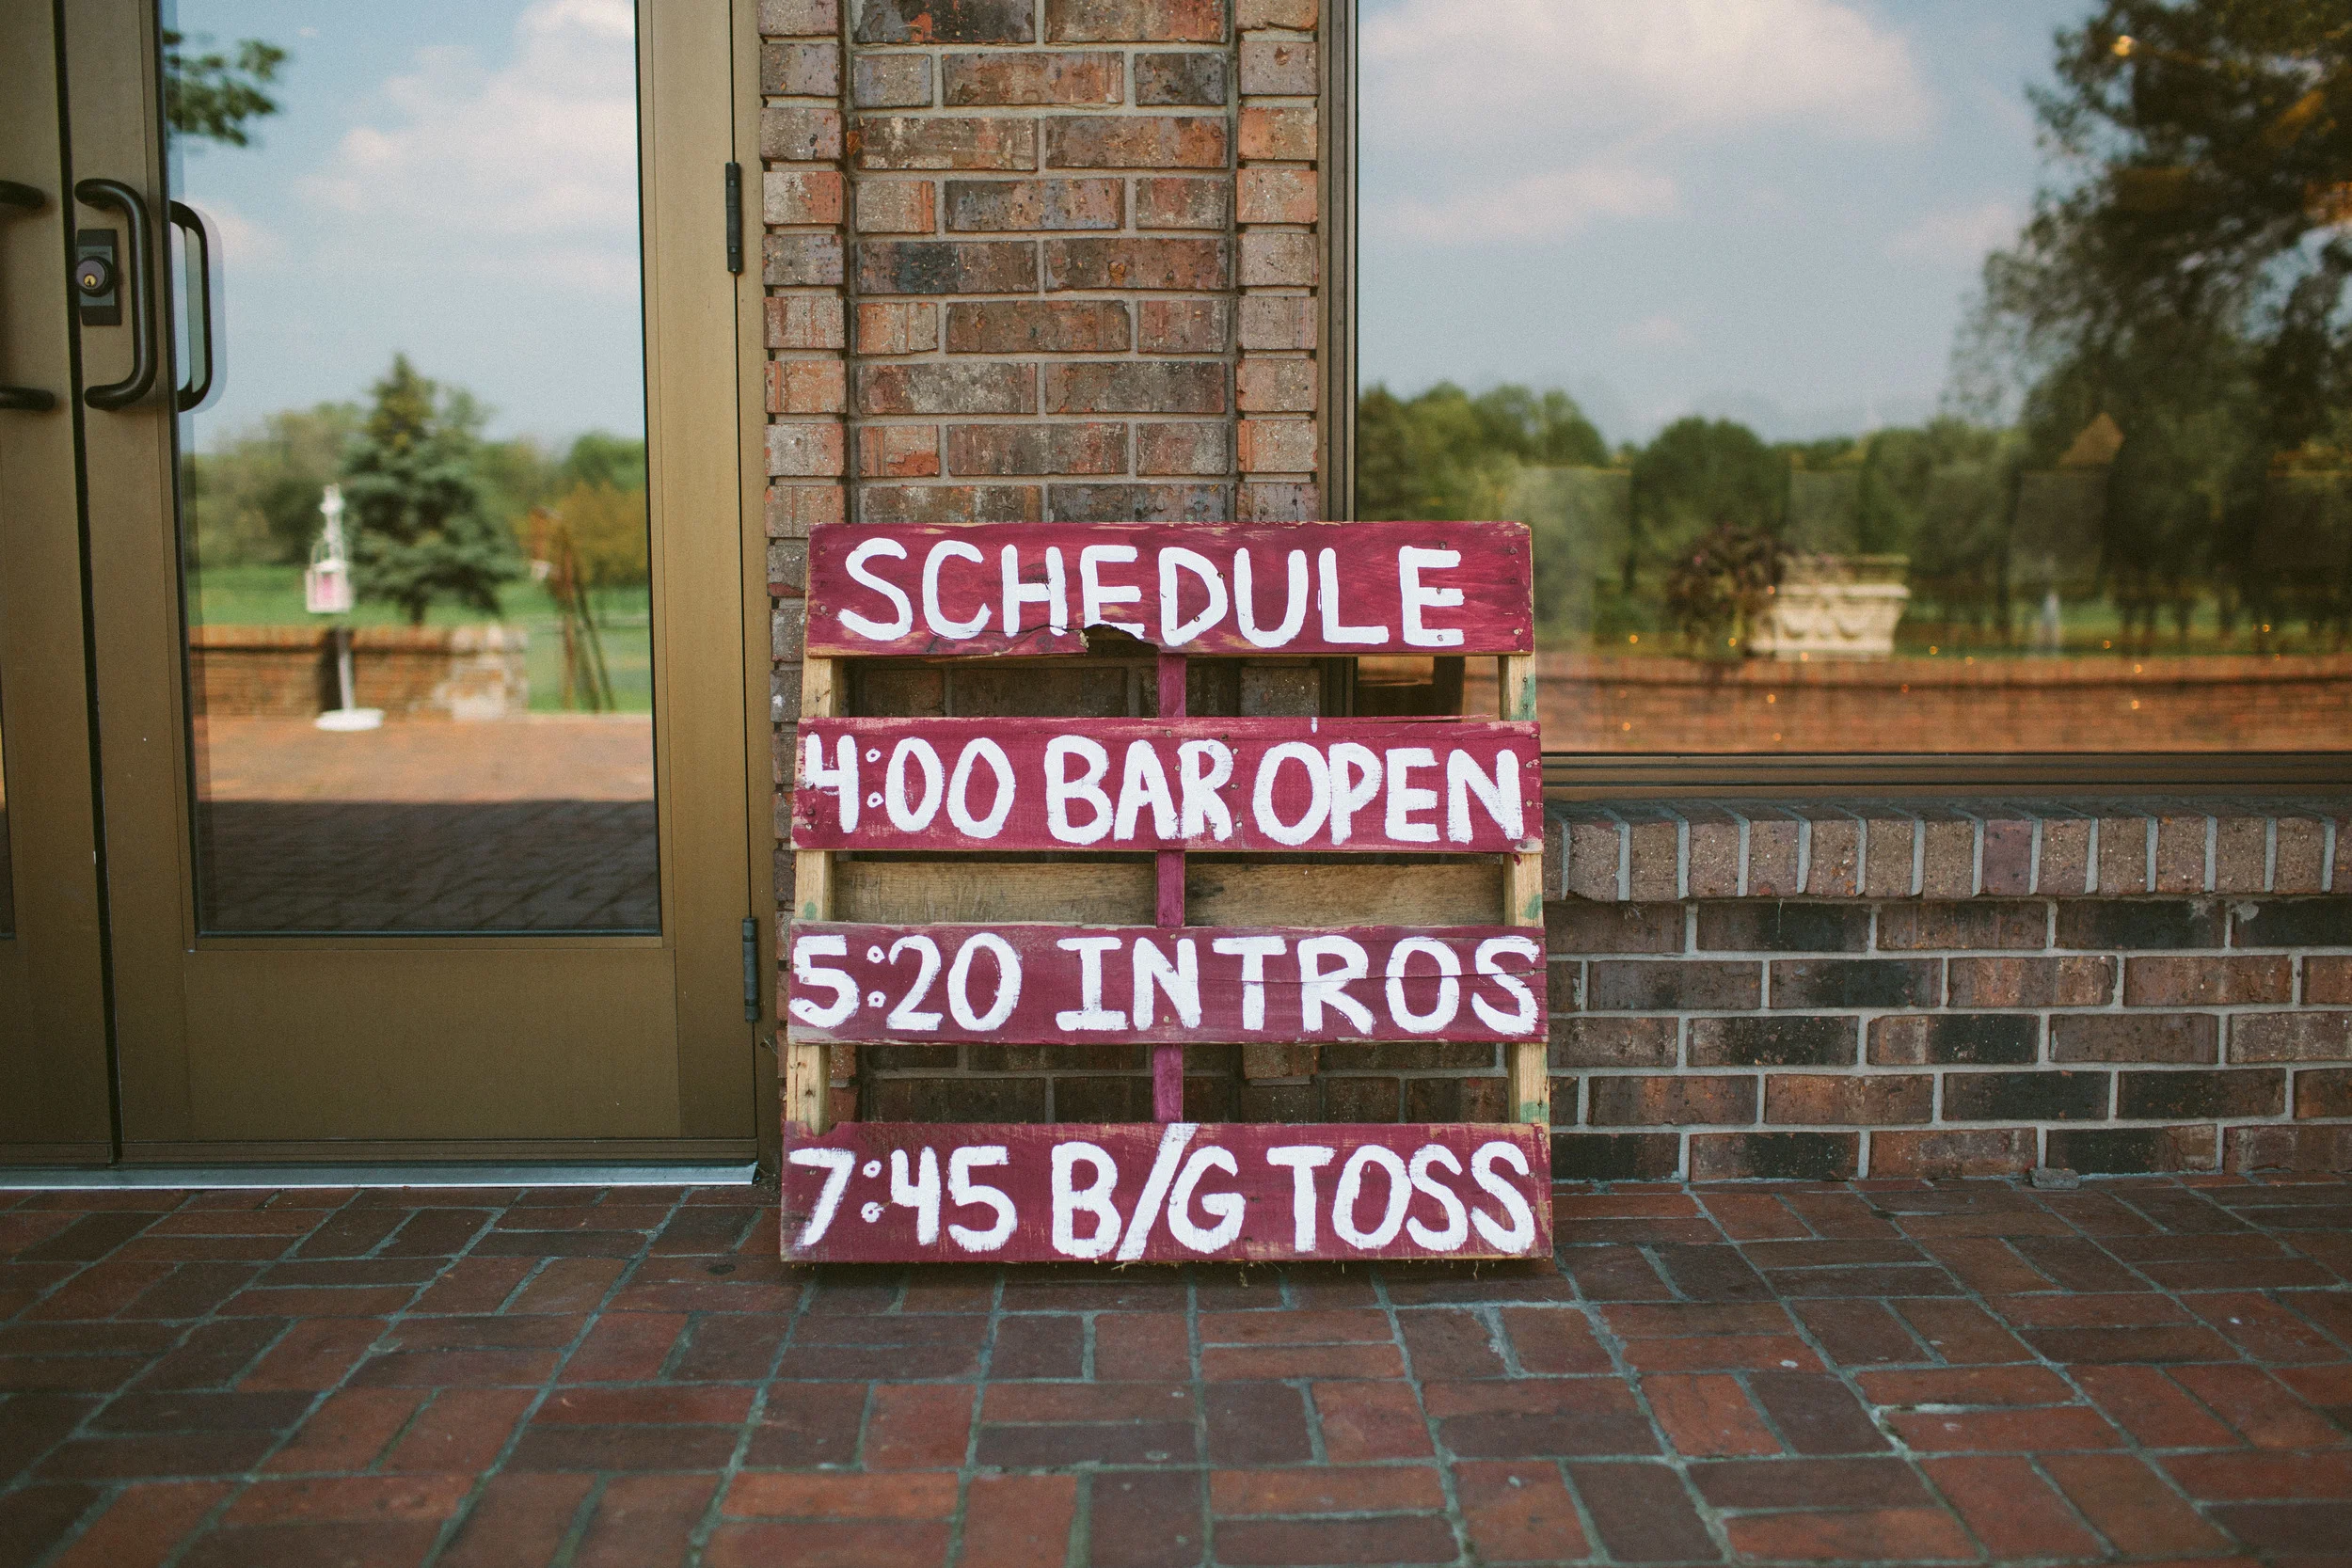 SCHEDULE
4:00 BAR OPEN
5:20 INTROS
7:45 B/G TOSS